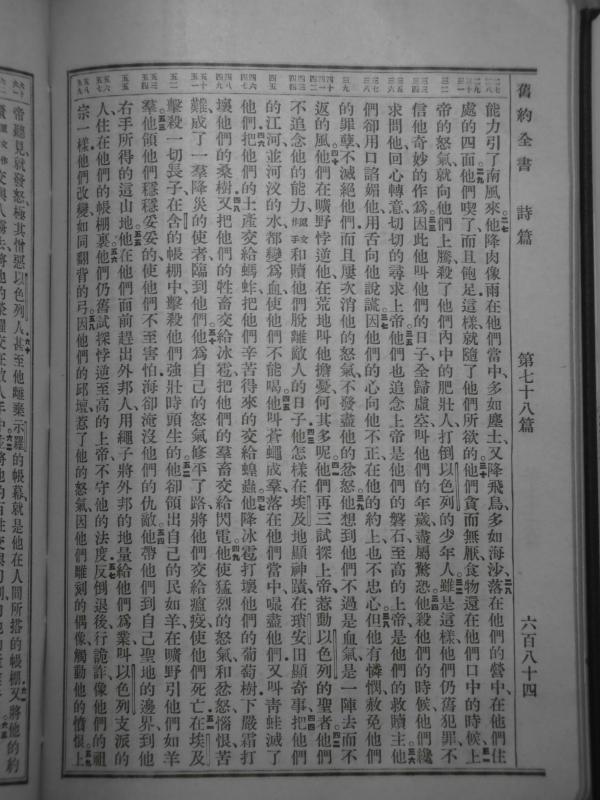 舊約全書　詩篇　第七十八篇　六百八十四
能力引了南風來他降肉像雨在他們當中多如塵土又降飛鳥多如海沙落在他們的營中在他們住
處的四面他們喫了而且飽足這樣就隨了他們所欲的他們貪而無厭食物還在他們口中的時候上
帝的怒氣就向他們上騰殺了他們內中的肥壯人打倒以色列的少年人雖是這樣他們仍舊犯罪不
信他奇妙的作爲因此他叫他們的日子全歸虛空叫他們的年歲盡屬驚恐他殺他們的時候他們纔
求問他回心轉意切切的尋求上帝他們也追念上帝是他們的磐石至高的上帝是他們的救贖主他
們卻用口諂媚他用舌向他說謊因他們的心向他不正在他的約上也不忠心但他有憐憫赦免他們
的罪孽不滅絕他們而且屢次消他的怒氣不發盡他的忿怒他想到他們不過是血氣是一陣去而不
返的風他們在曠野悖逆他在荒地叫他擔憂何其多呢他們再三試探上帝惹動以色列的聖者他們
不追念他的能力原文作手和贖他們脫離敵人的日子他怎樣在埃及地顯神蹟在瑣安田顯奇事把他們
的江河並河汊的水都變爲血使他們不能喝他叫蒼蠅成羣落在他們當中嘬盡他們又叫靑蛙滅了
他們把他們的土產交給螞蚱把他們辛苦得來的交給蝗蟲他降冰雹打壞他們的葡萄樹下嚴霜打
壞他們的桑樹又把他們的牲畜交給冰雹把他們的羣畜交給閃電他使猛烈的怒氣和忿怒惱恨苦
難成了一羣降災的使者臨到他們他爲自己的怒氣修平了路將他們交給瘟疫使他們死亡在埃及
擊殺一切長子在含的帳棚中擊殺他們強壯時頭生的他卻領出自己的民如羊在曠野引他們如羊
羣他領他們穩穩妥妥的使他們不至害怕海卻淹沒他們的仇敵他帶他們到自己聖地的邊界到他
右手所得的這山地他在他們面前趕出外邦人用繩子將外邦的地量給他們爲業叫以色列支派的
人住在他們的帳棚裏他們仍舊試探悖逆至高的上帝不守他的法度反倒退後行詭詐像他們的祖
宗一樣他們改變如同翻背的弓因他們的邱壇惹了他的怒氣因他們雕刻的偶像觸動他的憤恨上
帝聽見就發怒極其憎惡以色列人甚至他離棄示羅的帳幕就是他在人間所搭的帳棚又將他的約